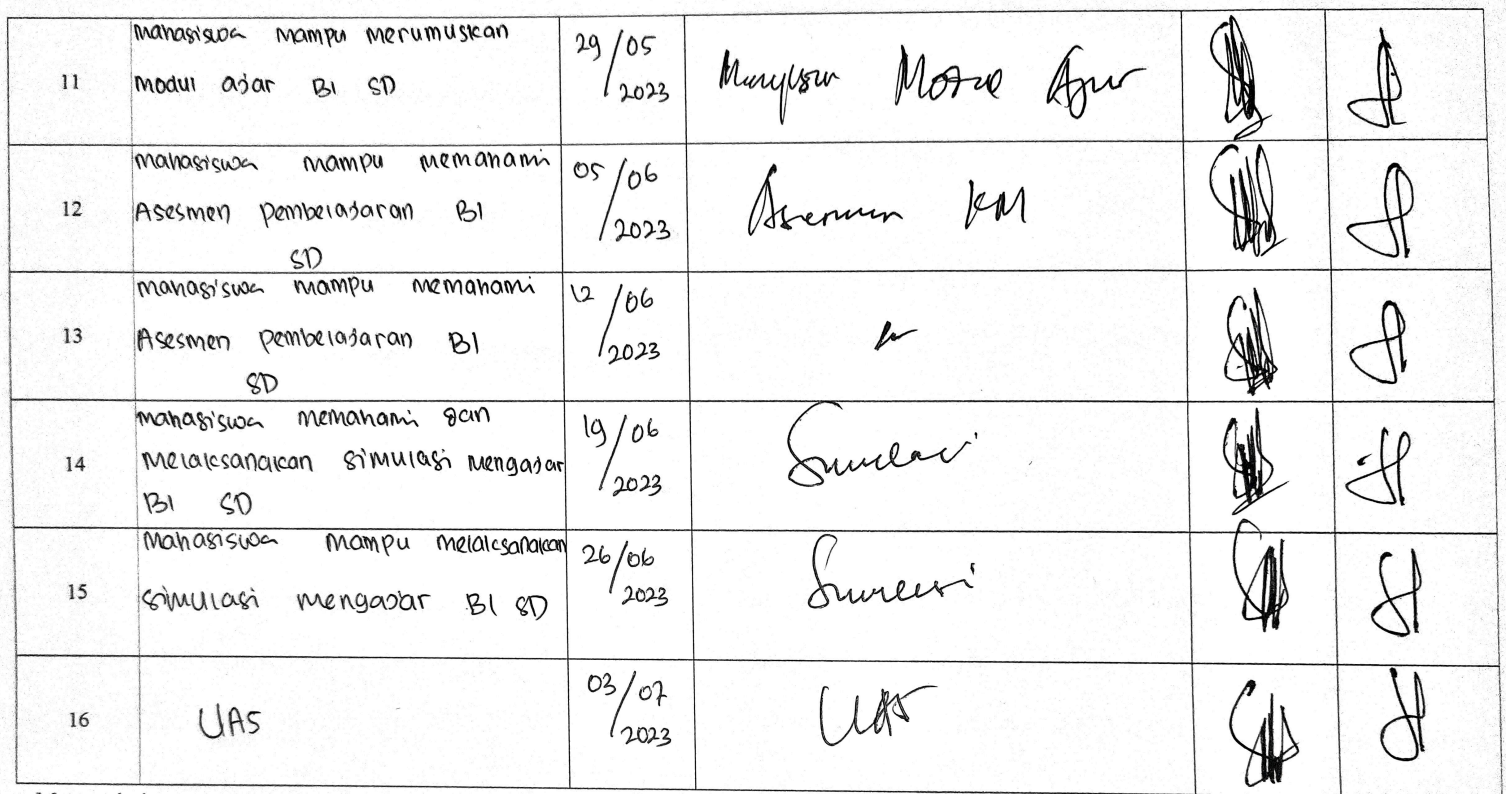 11
mahasiswa mampu merumuskan
modul ajar BI SD
29/05
2023
Modul Ajar
12
mahasiswa mampu memahami
Asesmen pembelajaran BI
SD
05/06
2023
Asesmen KM
13
mahasiswa mampu memahami
Asesmen pembelajaran BI
SD
12/06
2023
14
mahasiswa memahami dan
melaksanakan simulasi mengajar
BI SD
19/06
2023
Simulasi
15
mahasiswa mampu melaksanakan
simulasi mengajar BI SD
26/06
2023
Simulasi
16
UAS
03/07
2023
UAS